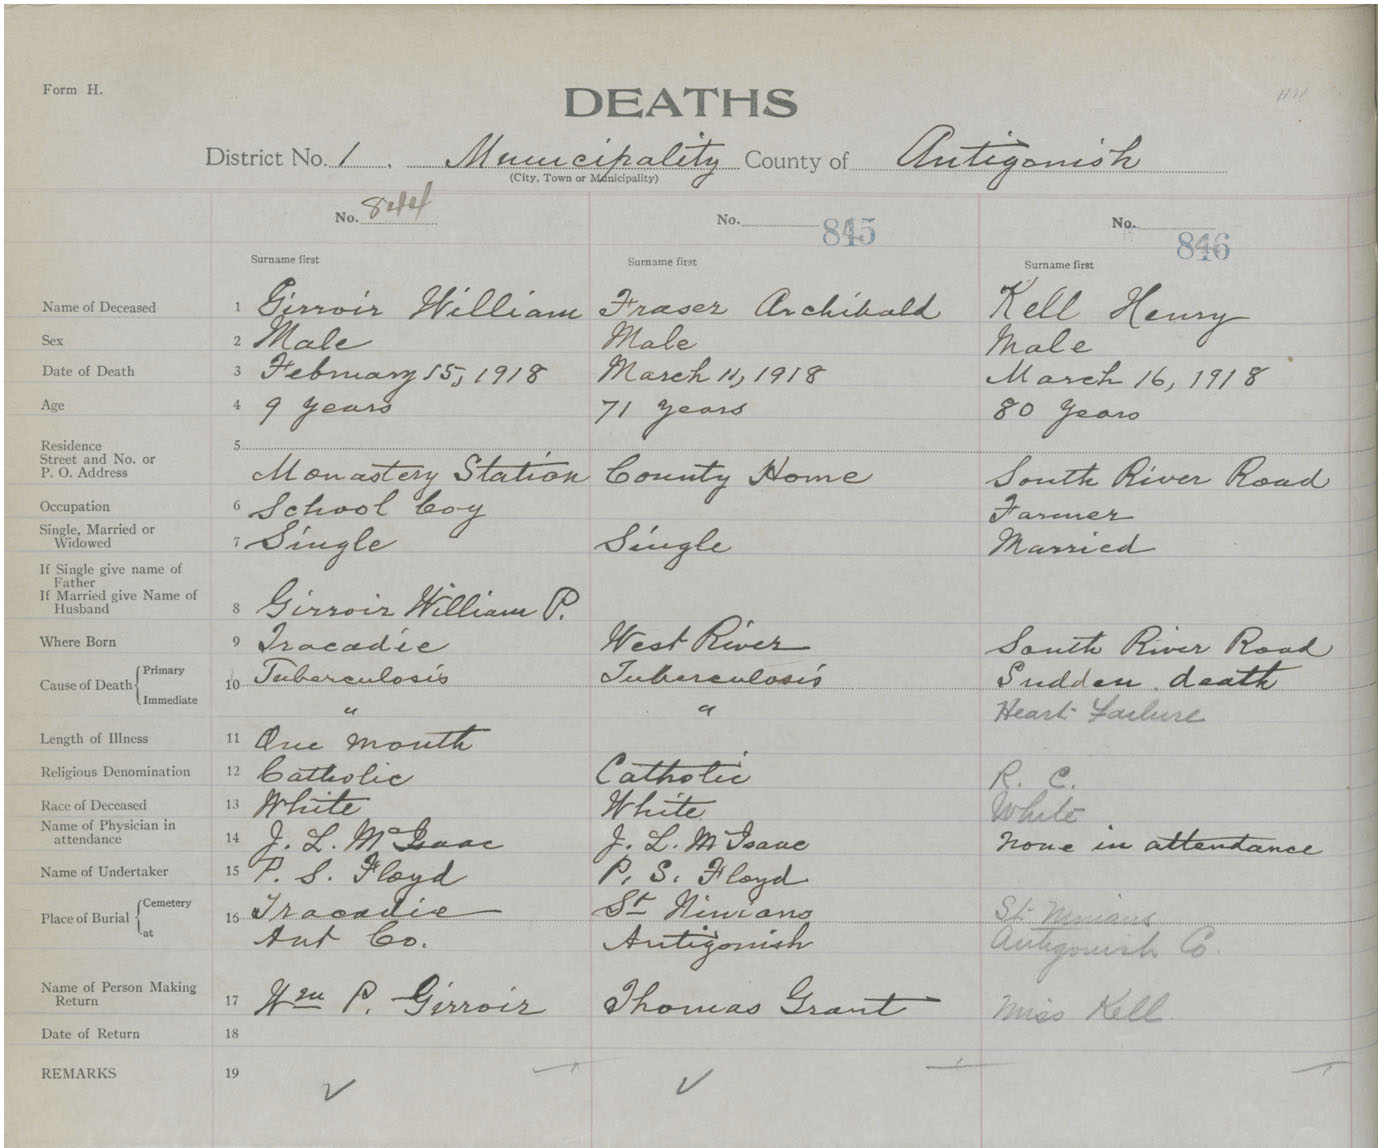 Form H.
DEATHS
District No. 1. Municipality County of Antigonish
(City, Town or Municipality)
No. 844 No. 845 No. 846
Surname first Surname first Surname first
Name of Deceased 1 Girroir William Fraser Archibald Kell Henry
Sex 2 Male Male Male
Date of Death 3 February 15, 1918 March 11, 1918 March 16, 1918
Age 4 9 years 71 years 80 years
Residence 5
Street and No. or
P. O. Address Monastery Station County Home South River Road
Occupation 6 School boy Farmer
Single, Married or
Widowed 7 Single Single Married
If Single give name of
Father
If Married give Name of
Husband 8 Girroir William P.
Where Born 9 Tracadie West River South River Road
Cause of Death { Primary 10 Tuberculosis Tuberculosis Sudden death
Immediate " " Heart Failure
Length of Illness 11 One month
Religious Denomination 12 Catholic Catholic R. C.
Race of Deceased 13 White White White
Name of Physician in
attendance 14 J. L. McIsaac J. L. McIsaac None in attendance
Name of Undertaker 15 P. S. Floyd P. S. Floyd
Place of Burial { Cemetery 16 Tracadie St Ninians St Ninians
at Ant Co. Antigonish Antigonish Co.
Name of Person Making
Return 17 Wm P. Girroir Thomas Grant Miss Kell.
Date of Return 18
REMARKS 19